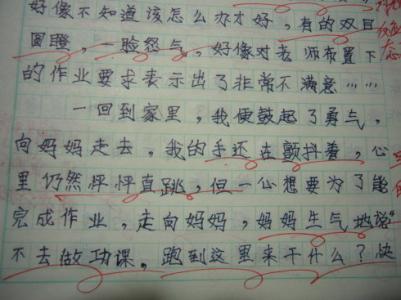 好像不知道该怎么办才好，有的双目
圆瞪，一脸怒气，好像对老师布置下
的作业要求表示出了非常不满意……
一回到家里，我便鼓起了勇气，
向妈妈走去，我的手还在颤抖着，心
里仍然怦怦直跳，但一心想要为了能
完成作业，走向妈妈，妈妈生气地说“
不去做功课，跑到这里来干什么？快